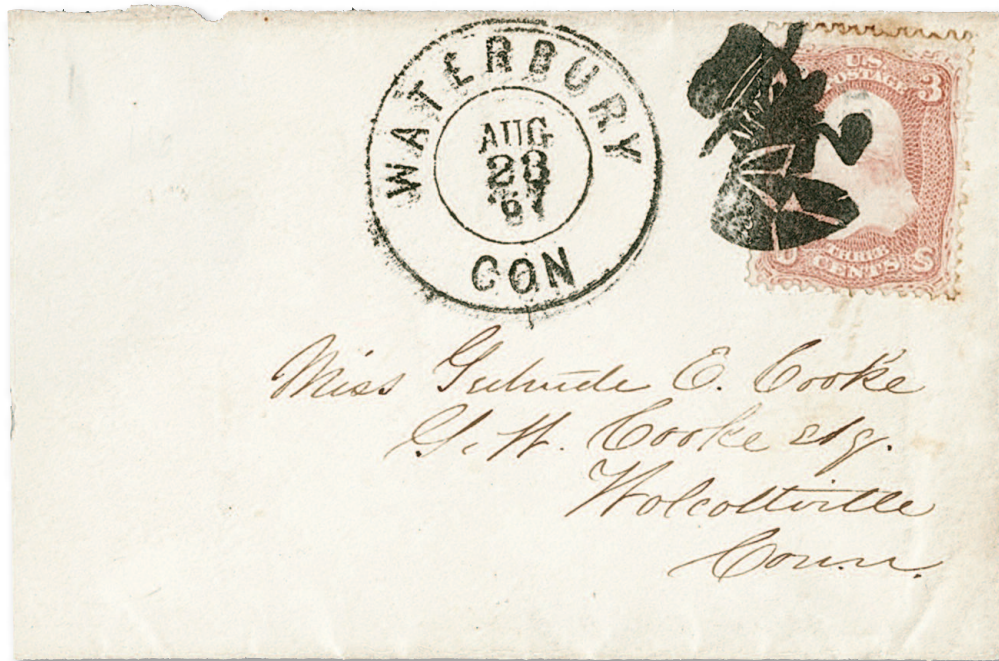 WATERBURY
AUG
28
67
CON
U.S.
POSTAGE
3
THREE
CENTS
U S
Miss Gertrude E. Cooke
G. W. Cooke esq.
Wolcottville
Conn.